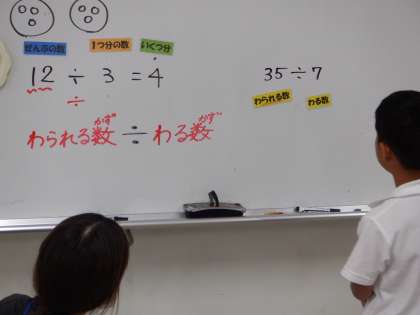 ぜんぶの数 1つ分の数 いくつ分
12 ÷ 3 = 4
÷
わられる数 ÷ わる数
かず かず
35÷7
わられる数 わる数